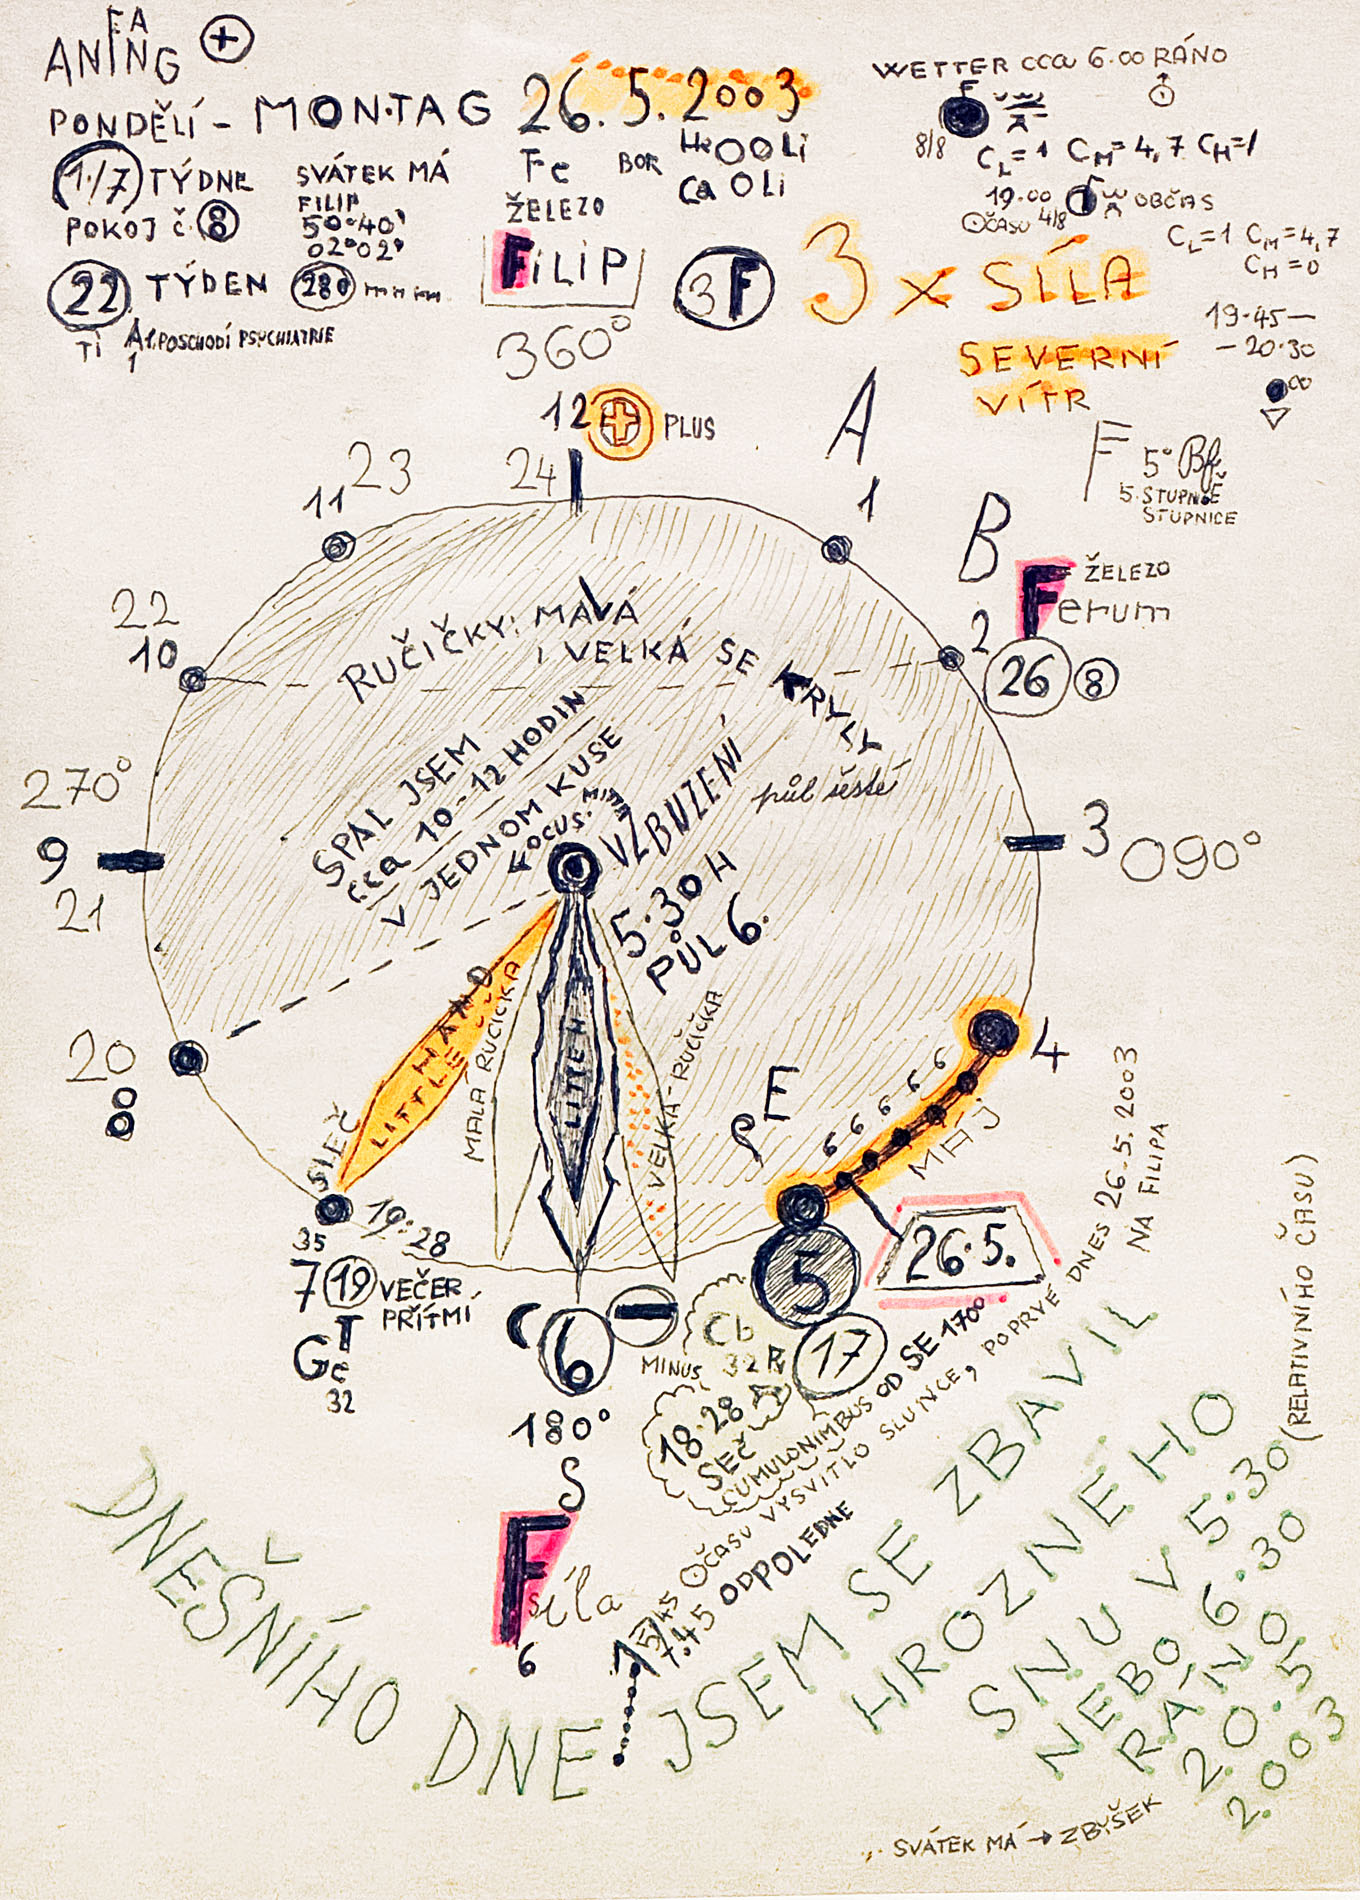 FA
ANING +
PONDĚLÍ - MONTAG 26. 5. 2003
1./7 TÝDNE
POKOJ Č. 8
22 TÝDEN
A 1. POSCHODÍ PSYCHIATRIE
TI 1
SVÁTEK MÁ
FILIP
50°40'
02°02'
280
Fe BOR HeOOLi
CaOLi
ŽELEZO
FILIP
3F
3 x SÍLA
SEVERNÍ
VÍTR
WETTER cca 6.00 RÁNO
8/8
CL=1 CM=4,7 CH=/
19.00
OBČAS
ČASU 4/8
CL=1 CM=4,7
CH=0
19.45-
-20.30
F 5° Bf.
5. STUPNĚ
STUPNICE
360°
12 PLUS
24
23
11
A
1
B
2
Ferum
ŽELEZO
26 8
22
10
270°
9
21
3 090°
20
8
4
RUČIČKY: MALÁ
I VELKÁ SE KRYLY
SPAL JSEM
cca 10-12 HODIN
V JEDNOM KUSE
VZBUZENÍ
půl šesté
5.30 H
PŮL 6.
LITTLE HAND
MALÁ RUČIČKA
LITTLE H
VELKÁ RUČIČKA
E
6 6 6 6 6
MAJ
26.5.
5
17
SLEČ
19:28
35
7 19 VEČER
PŘÍTMÍ
Ge
32
6
MINUS
180°
S
F síla
6
Cb
18.28
SEČ
CUMULONIMBUS OD SE 17°°
ČASU VYSVITLO SLUNCE, POPRVÉ DNES 26.5. 2003
NA FILIPA
7.45 ODPOLEDNE
(RELATIVNÍHO ČASU)
DNEŠNÍHO DNE JSEM SE ZBAVIL
HROZNÉHO
SNU V 5.30
NEBO 6.30
RÁNO
20.5
2003
SVÁTEK MÁ → ZBYŠEK